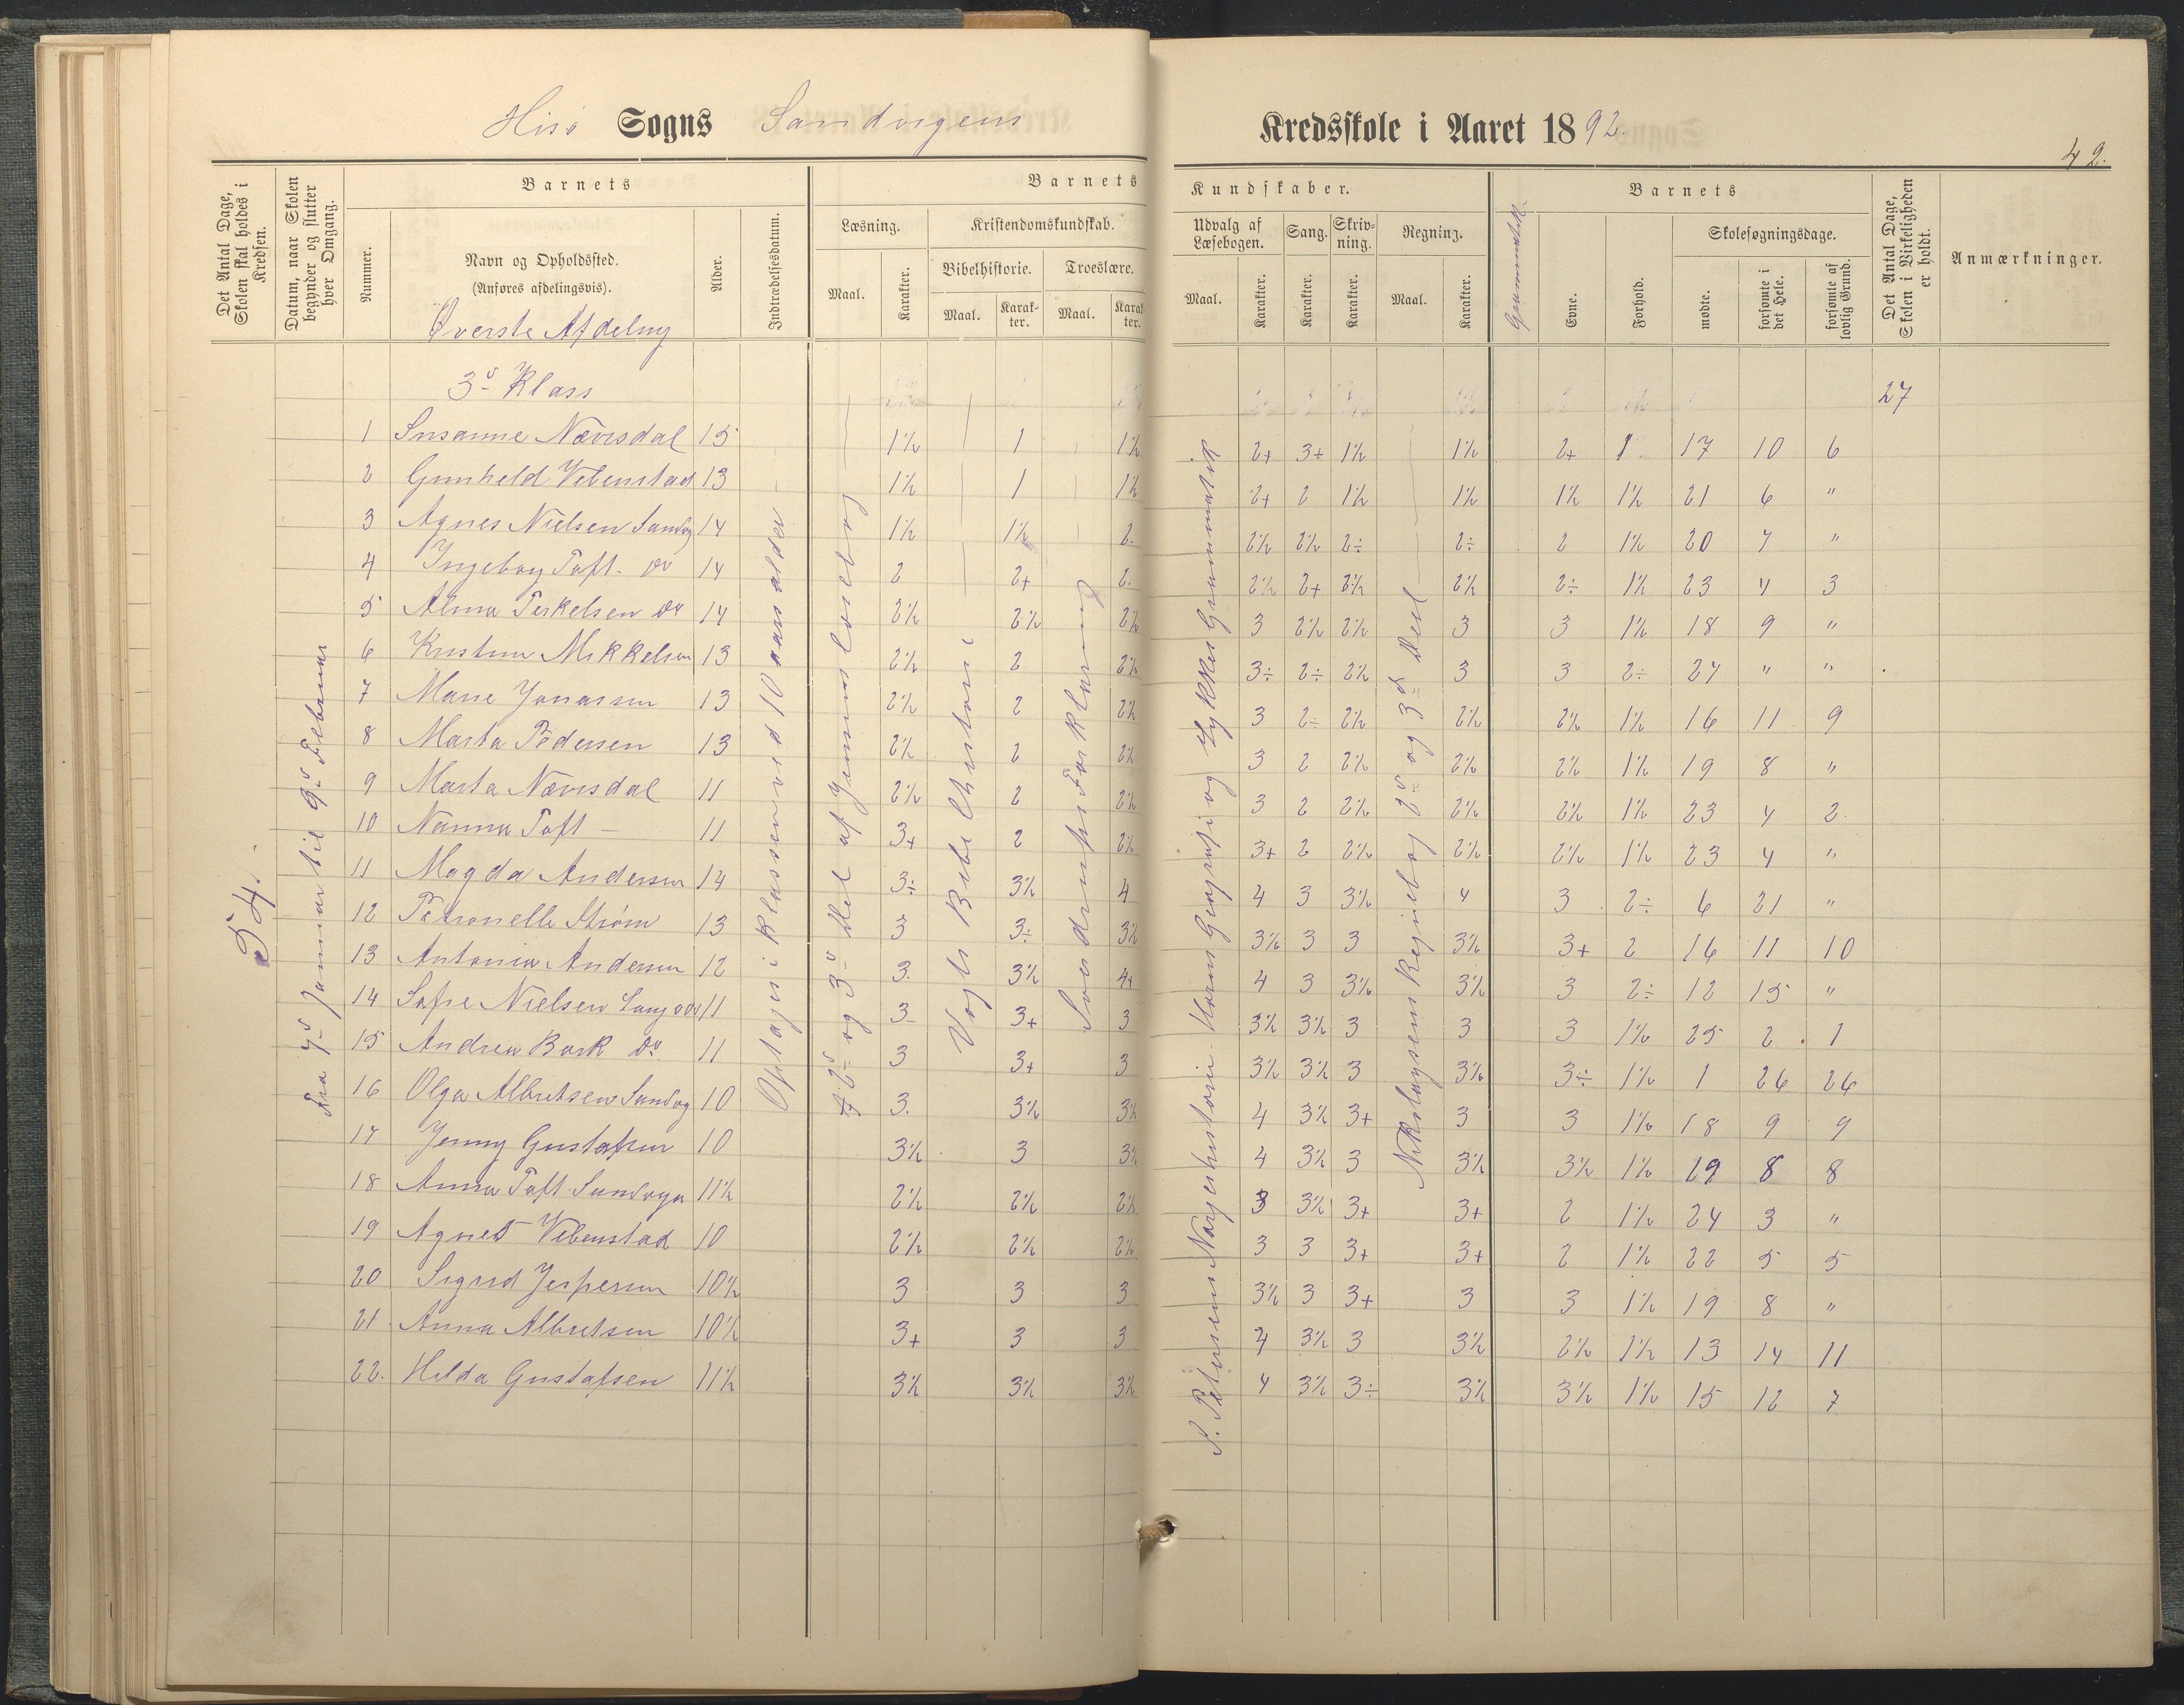 Hisø Sogns Sandvigens Kredsskole i Aaret 1892.
42.
Det Antal Dage, Skolen skal holdes i Kredsen.
Datum, naar Skolen begynder og slutter hver Omgang.
Barnets
Nummer.
Navn og Opholdssted.
(Anføres afdelingsvis).
Alder.
Indtrædelsesdatum.
Barnets Kundskaber.
Læsning.
Maal.
Karakter.
Kristendomskundskab.
Bibelhistorie.
Maal.
Karakter.
Troeslære.
Maal.
Karakter.
Udvalg af Læsebogen.
Maal.
Karakter.
Sang.
Karakter.
Skrivning.
Karakter.
Regning.
Maal.
Karakter.
Grammatik.
Barnets
Evne.
Forhold.
Skolesøgningsdage.
mødte.
forsømte i det Hele.
forsømte af lovlig Grund.
Det Antal Dage, Skolen i Virkeligheden er holdt.
Anmærkninger.
Øverste Afdeling
3d Klass
27
54.
Fra 7d Januar til 9d Februar
Optages i Klassen ved 10 aars alder
2d og 3d Del af Jensens Læsebog
Vogts Bibelhistorie
Sverdrups Forklaring
S. Petersens Norgeshistorie. Horns Geografi og Løkkes Grammatik
Nikolaysens Regnebog 2d og 3d Deel
1 Susanne Nævisdal 15 1½ 1 1½ 2+ 3+ 1½ 1½ 2+ 1 17 10 6
2 Gunheld Vibenstad 13 1½ 1 1½ 2+ 2 1½ 1½ 1½ 1½ 21 6 "
3 Agnes Nielsen Sandvg 14 1½ 1½ 2 2½ 2½ 2÷ 2÷ 2 1½ 20 7 "
4 Ingeborg Toft do 14 2 2+ 2 2½ 2+ 2½ 2½ 2÷ 1½ 23 4 3
5 Alma Terkelsen do 14 2½ 2½ 2½ 3 2½ 2½ 3 3 1½ 18 9 "
6 Kristine Mikkelsen 13 2½ 2 2½ 3÷ 2÷ 2½ 3 3 2÷ 27 " "
7 Marie Jonassen 13 2½ 2 2½ 3 2÷ 2½ 2½ 2½ 1½ 16 11 9
8 Marta Pedersen 13 2½ 2 2½ 3 2 2½ 2½ 2½ 1½ 19 8 "
9 Marta Nævisdal 11 2½ 2 2½ 3 2 2½ 2½ 2½ 1½ 23 4 2
10 Nanna Toft 11 3+ 2 2½ 3+ 2 2½ 2½ 2½ 1½ 23 4 "
11 Magda Andersen 14 3÷ 3½ 4 4 3 3½ 4 3 2÷ 6 21 "
12 Petronelle Strøm 13 3 3÷ 3½ 3½ 3 3 3½ 3+ 2 16 11 10
13 Antonia Andersen 12 3. 3½ 4+ 4 3 3½ 3½ 3 2÷ 12 15 "
14 Sofie Nielsen 11 3 3+ 3 3½ 3½ 3 3 3 1½ 25 2 1
15 Andrea Bork do 11 3 3+ 3 3½ 3½ 3 3½ 3÷ 1½ 1 26 26
16 Olga Albretsen Sandvg 10 3. 3½ 3½ 4 3½ 3+ 3 3 1½ 18 9 9
17 Jenny Gustafsen 10 3½ 3 3½ 4 3½ 3 3½ 3½ 1½ 19 8 8
18 Anna Toft Sandvgn 11½ 2½ 2½ 2½ 3 3½ 3+ 3+ 2 1½ 24 3 "
19 Agnes Vibenstad 10 2½ 2½ 2½ 3 3 3+ 3+ 2 1½ 22 5 5
20 Sigrid Jespersen 10½ 3 3 3 3½ 3 3+ 3 3 1½ 19 8 "
21 Anna Albretsen 10½ 3+ 3 3 4 3½ 3 3½ 2½ 1½ 13 14 11
22. Hilda Gustafsen 11½ 3½ 3½ 3½ 4 3½ 3÷ 3½ 3½ 1½ 15 12 7